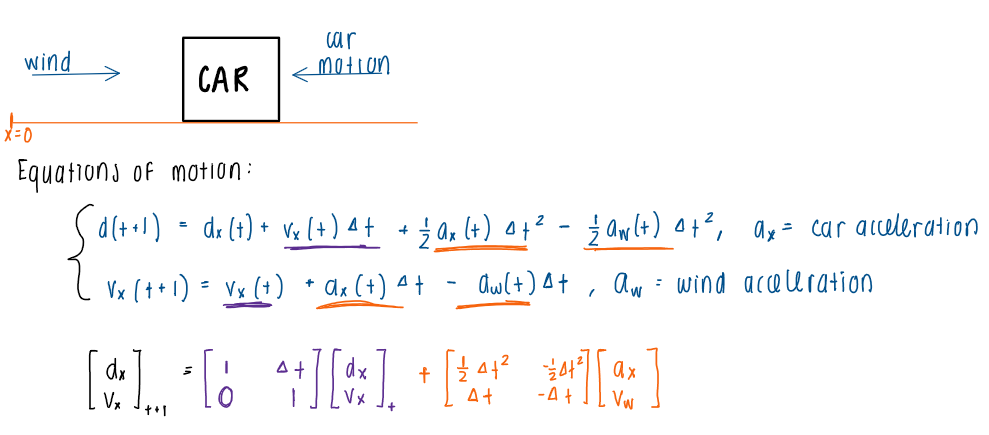 car
wind motion
CAR
x=0
Equations of motion:
d(t+1) = dₓ(t) + vₓ(t) Δt + ½ aₓ(t) Δt² - ½ a_w(t) Δt², aₓ = car acceleration
vₓ(t+1) = vₓ(t) + aₓ(t) Δt - a_w(t) Δt, a_w = wind acceleration
[dₓ vₓ]ₜ₊₁ = [1 Δt 0 1] [dₓ vₓ]ₜ + [½ Δt² -½ Δt² Δt -Δt] [aₓ v_w]